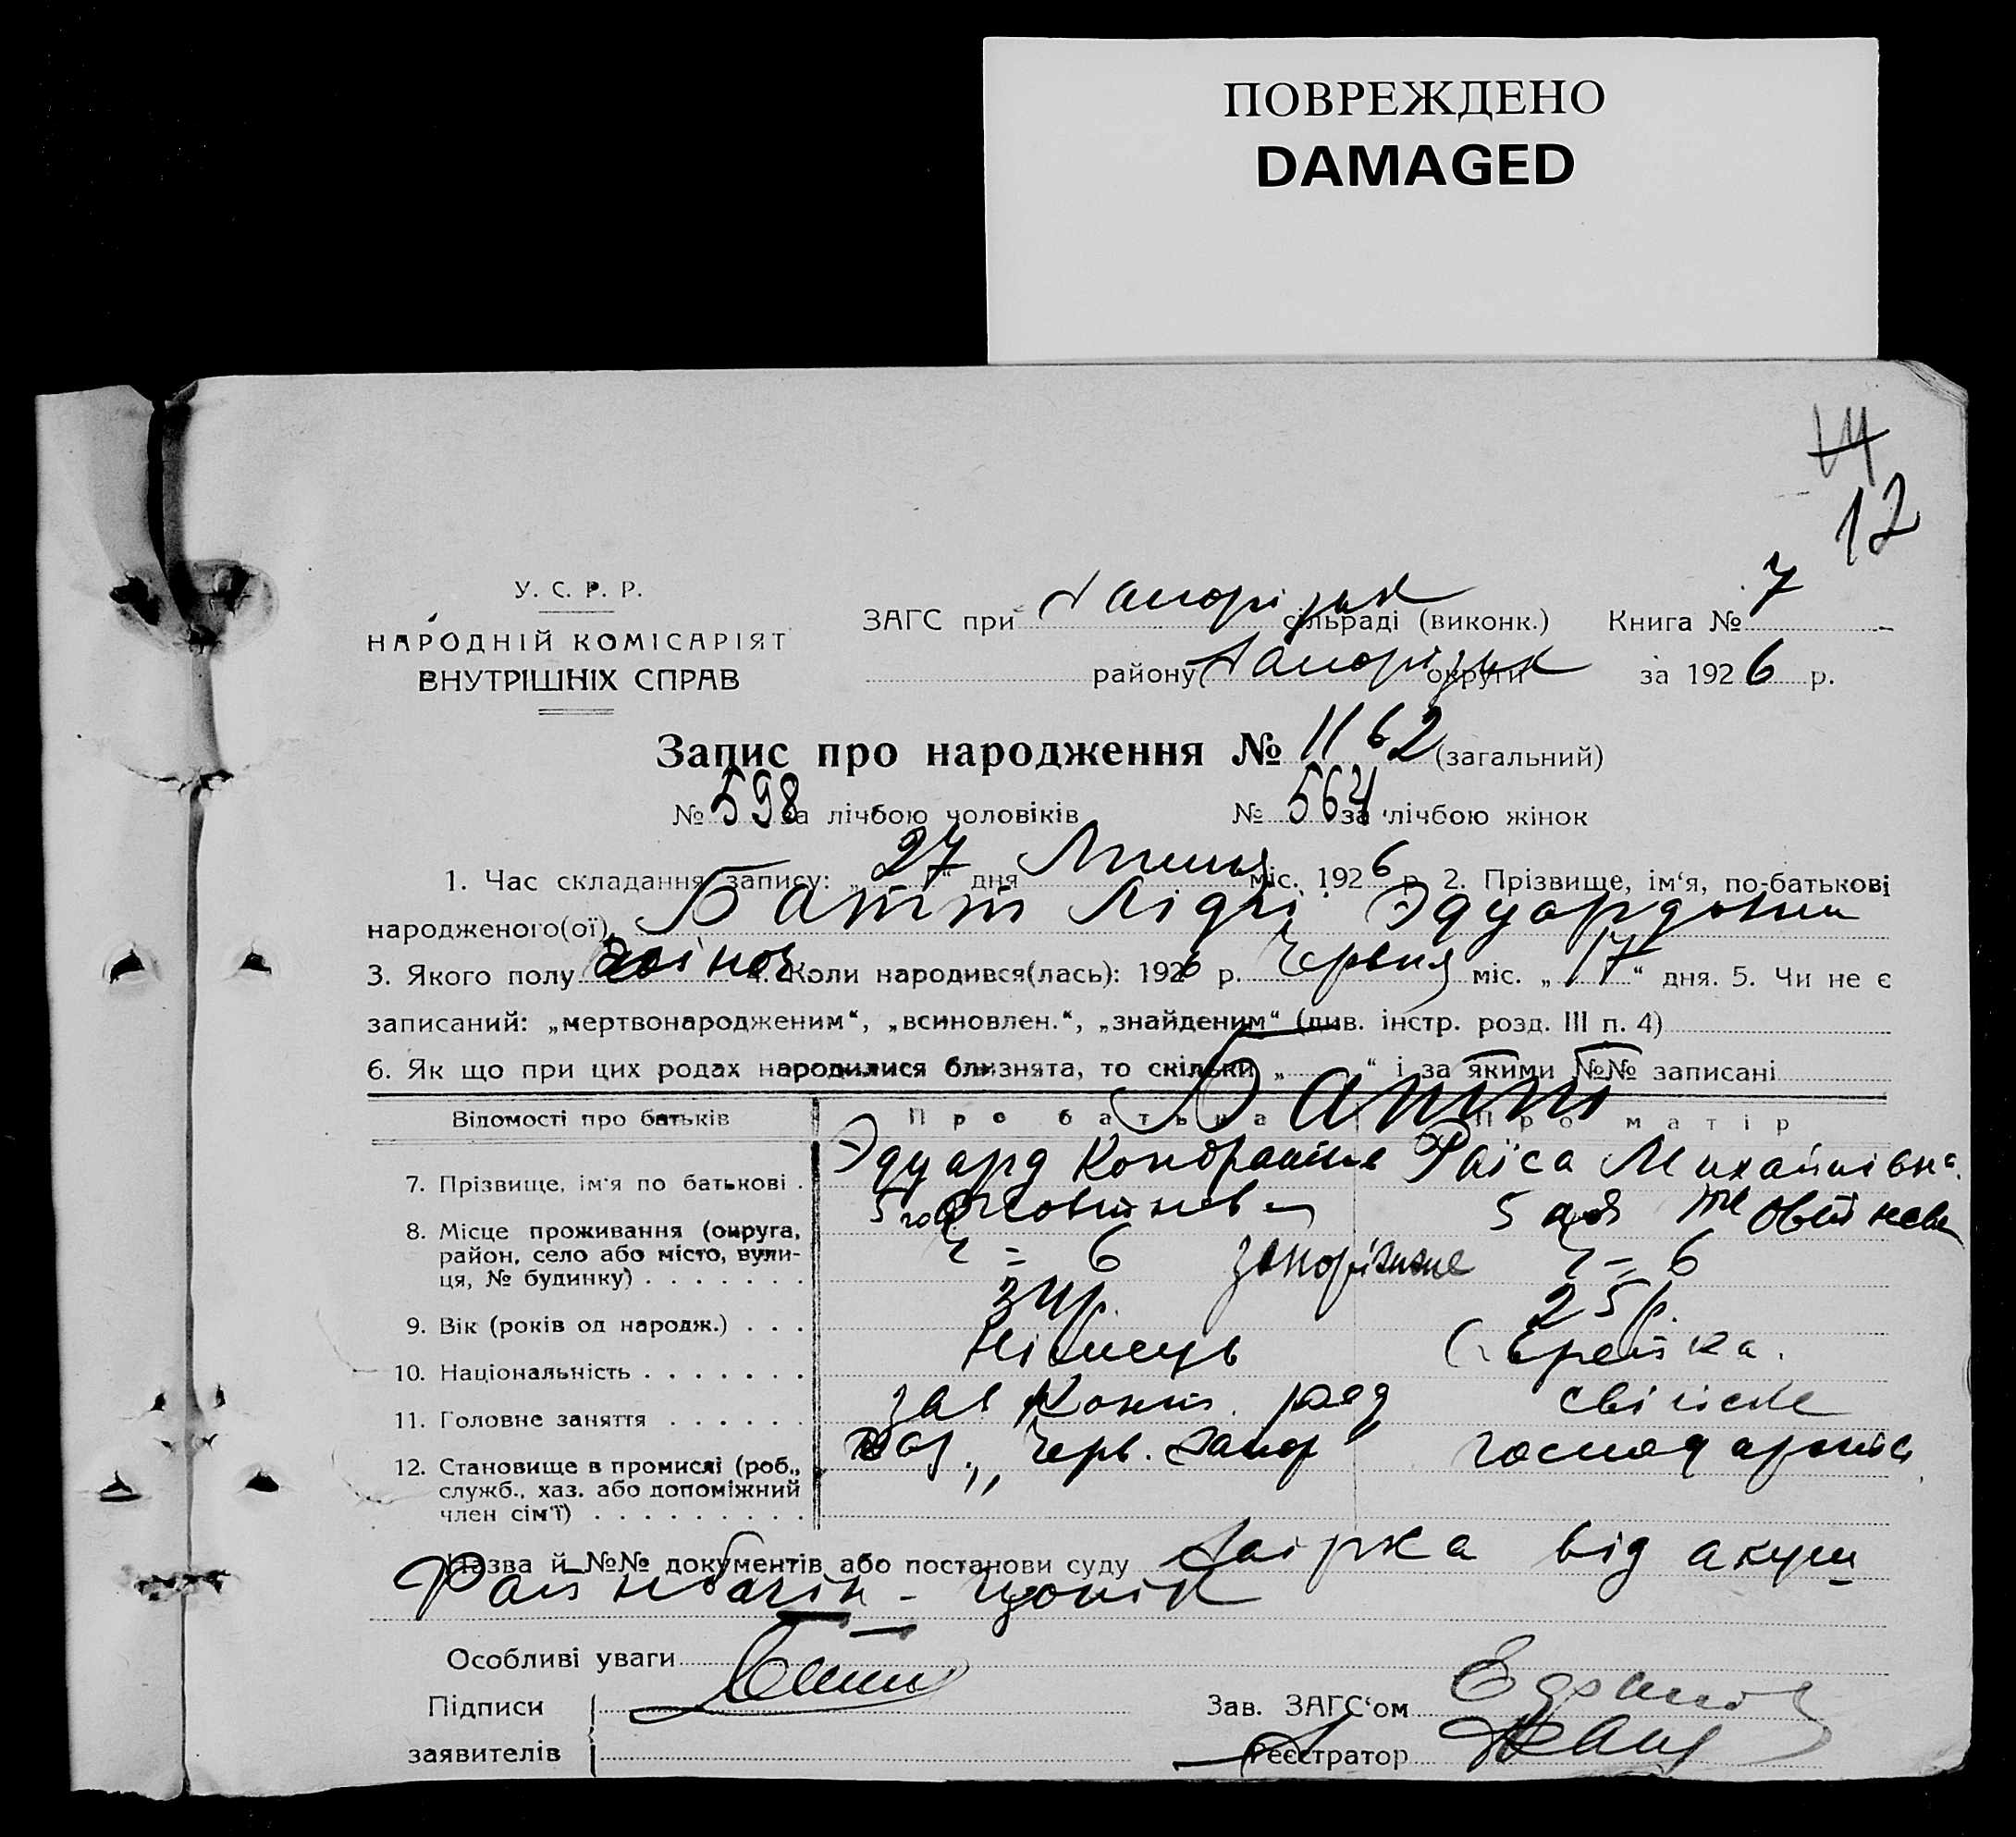 ПОВРЕЖДЕНО
DAMAGED
14
12
У. С. Р. Р.
НАРОДНІЙ КОМІСАРІЯТ
ВНУТРІШНІХ СПРАВ
ЗАГС при Запорізьк сільраді (виконк.) Книга № 7
району Запорізьк округи за 1926 р.
Запис про народження № 1162 (загальний)
№ 598 за лічбою чоловіків № 564 за лічбою жінок
1. Час складання запису: „27“ дня Липня міс. 1926 р. 2. Прізвище, ім‘я, по-батькові
народженого(ої) Батт Лідія Эдуардовна
3. Якого полу жіноч. 4. Коли народився(лась): 1926 р. Червня міс. „17“ дня. 5. Чи не є
записаний: „мертвонародженим“, „всиновлен.“, „знайденим“ (див. інстр. розд. III п. 4)
6. Як що при цих родах народилися близнята, то скільки „ “ і за якими №№ записані
Батт
Відомості про батьків Про батька Про матір
7. Прізвище, ім‘я по батькові . Эдуард Кондратів Раїса Михайлівна
8. Місце проживання (округа, район, село або місто, вулиця, № будинку) 5 Жовтнев 5 Жовтнева
6 запоріжже 6
9. Вік (років од народж.) . . . 34р. 25р.
10. Національність . . . . . . . Німець Єврейка.
11. Головне заняття . . . . . . зав Конт. ред свійське
12. Становище в промислі (роб., служб., хаз. або допоміжний член сім‘ї) . . . . . . . . . „Черв. Запор“ господарств
Назва й №№ документів або постанови суду від акуш
Особливі уваги
Підписи Батт Зав. ЗАГС‘ом
заявителів Реєстратор